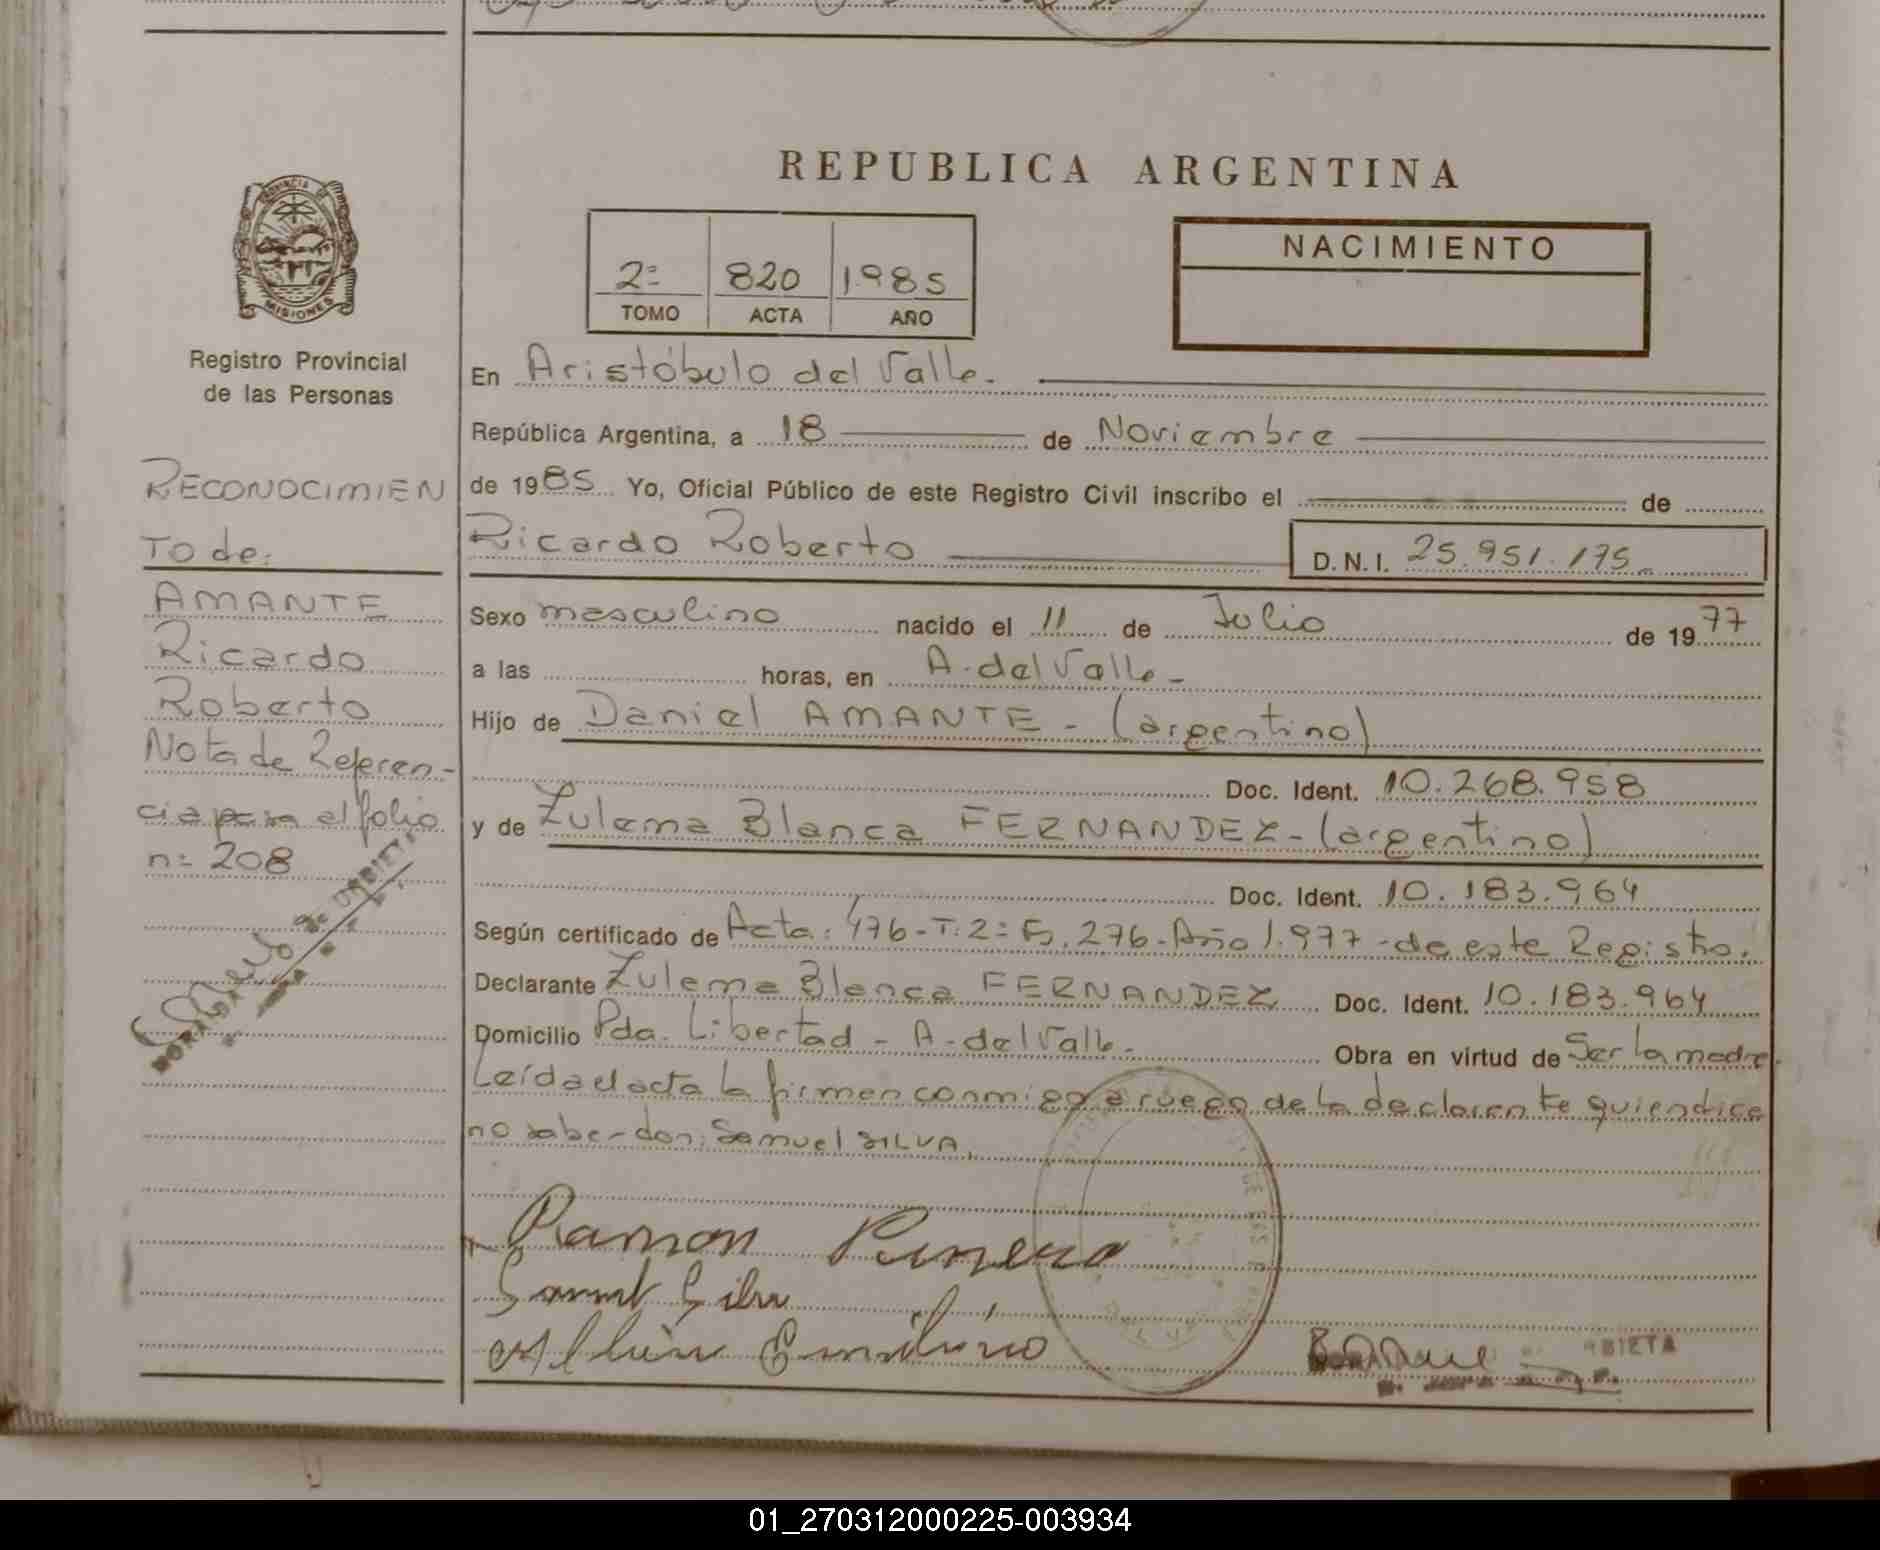 REPUBLICA ARGENTINA
PROVINCIA DE
MISIONES
Registro Provincial
de las Personas
2º 820 1985
TOMO ACTA AÑO
NACIMIENTO
En Aristóbulo del Valle.
República Argentina, a 18 de Noviembre
de 1985 Yo, Oficial Público de este Registro Civil inscribo el de
Ricardo Roberto D.N.I. 25.951.175
Sexo masculino nacido el 11 de Julio de 1977
a las horas, en A. del Valle -
Hijo de Daniel AMANTE - (argentino)
Doc. Ident. 10.268.958
y de Zulema Blanca FERNANDEZ - (argentino)
Doc. Ident. 10.183.964
Según certificado de Acta: 476 - T: 2º F. 276 - Año 1.977 - de este Registro.
Declarante Zulema Blanca FERNANDEZ Doc. Ident. 10.183.964
Domicilio Pda. Libertad - A. del Valle - Obra en virtud de Ser la madre.
Leída el acta la firman conmigo a ruego de la declarante quien dice
no saber don: Samuel SILVA,
Ramon
Samuel Silva
RECONOCIMIEN
TO de:
AMANTE
Ricardo
Roberto
Nota de Referen-
cia para el folio
nº 208
01_270312000225-003934